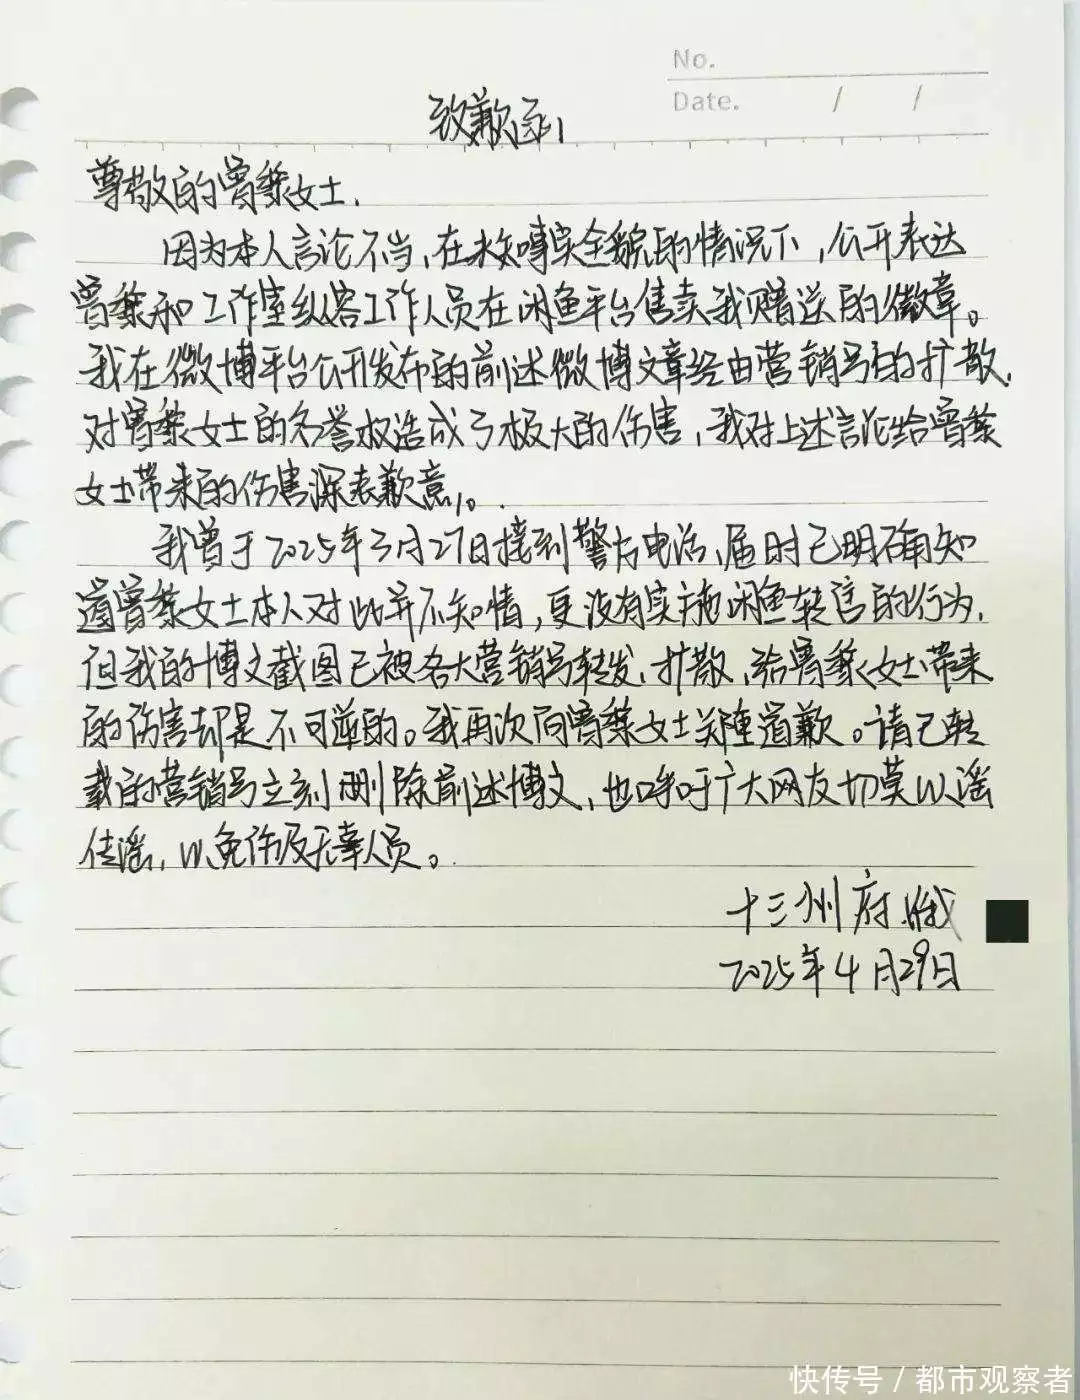 No.
Date. / /
致歉函
尊敬的曾黎女士.
因为本人言论不当,在未知事实全貌的情况下,公开表达
曾黎和工作室纵容工作人员在闲鱼平台售卖我赠送的徽章。
我在微博平台公开发布的前述微博文章经由营销号的扩散.
对曾黎女士的名誉权造成了极大的伤害,我对上述言论给曾黎
女士带来的伤害深表歉意。
我曾于2025年3月27日接到警方电话,届时已明确知
道曾黎女士本人对此并不知情,更没有实施闲鱼转售的行为.
但我的博文截图已被各大营销号转发、扩散,给曾黎女士带来
的伤害却是不可逆的。我再次向曾黎女士郑重道歉。请已转
载的营销号立刻删除前述博文,也呼吁广大网友切莫以谣
传谣,以免伤及无辜人员。
十三州府
2025年4月29日
快传号/都市观察者